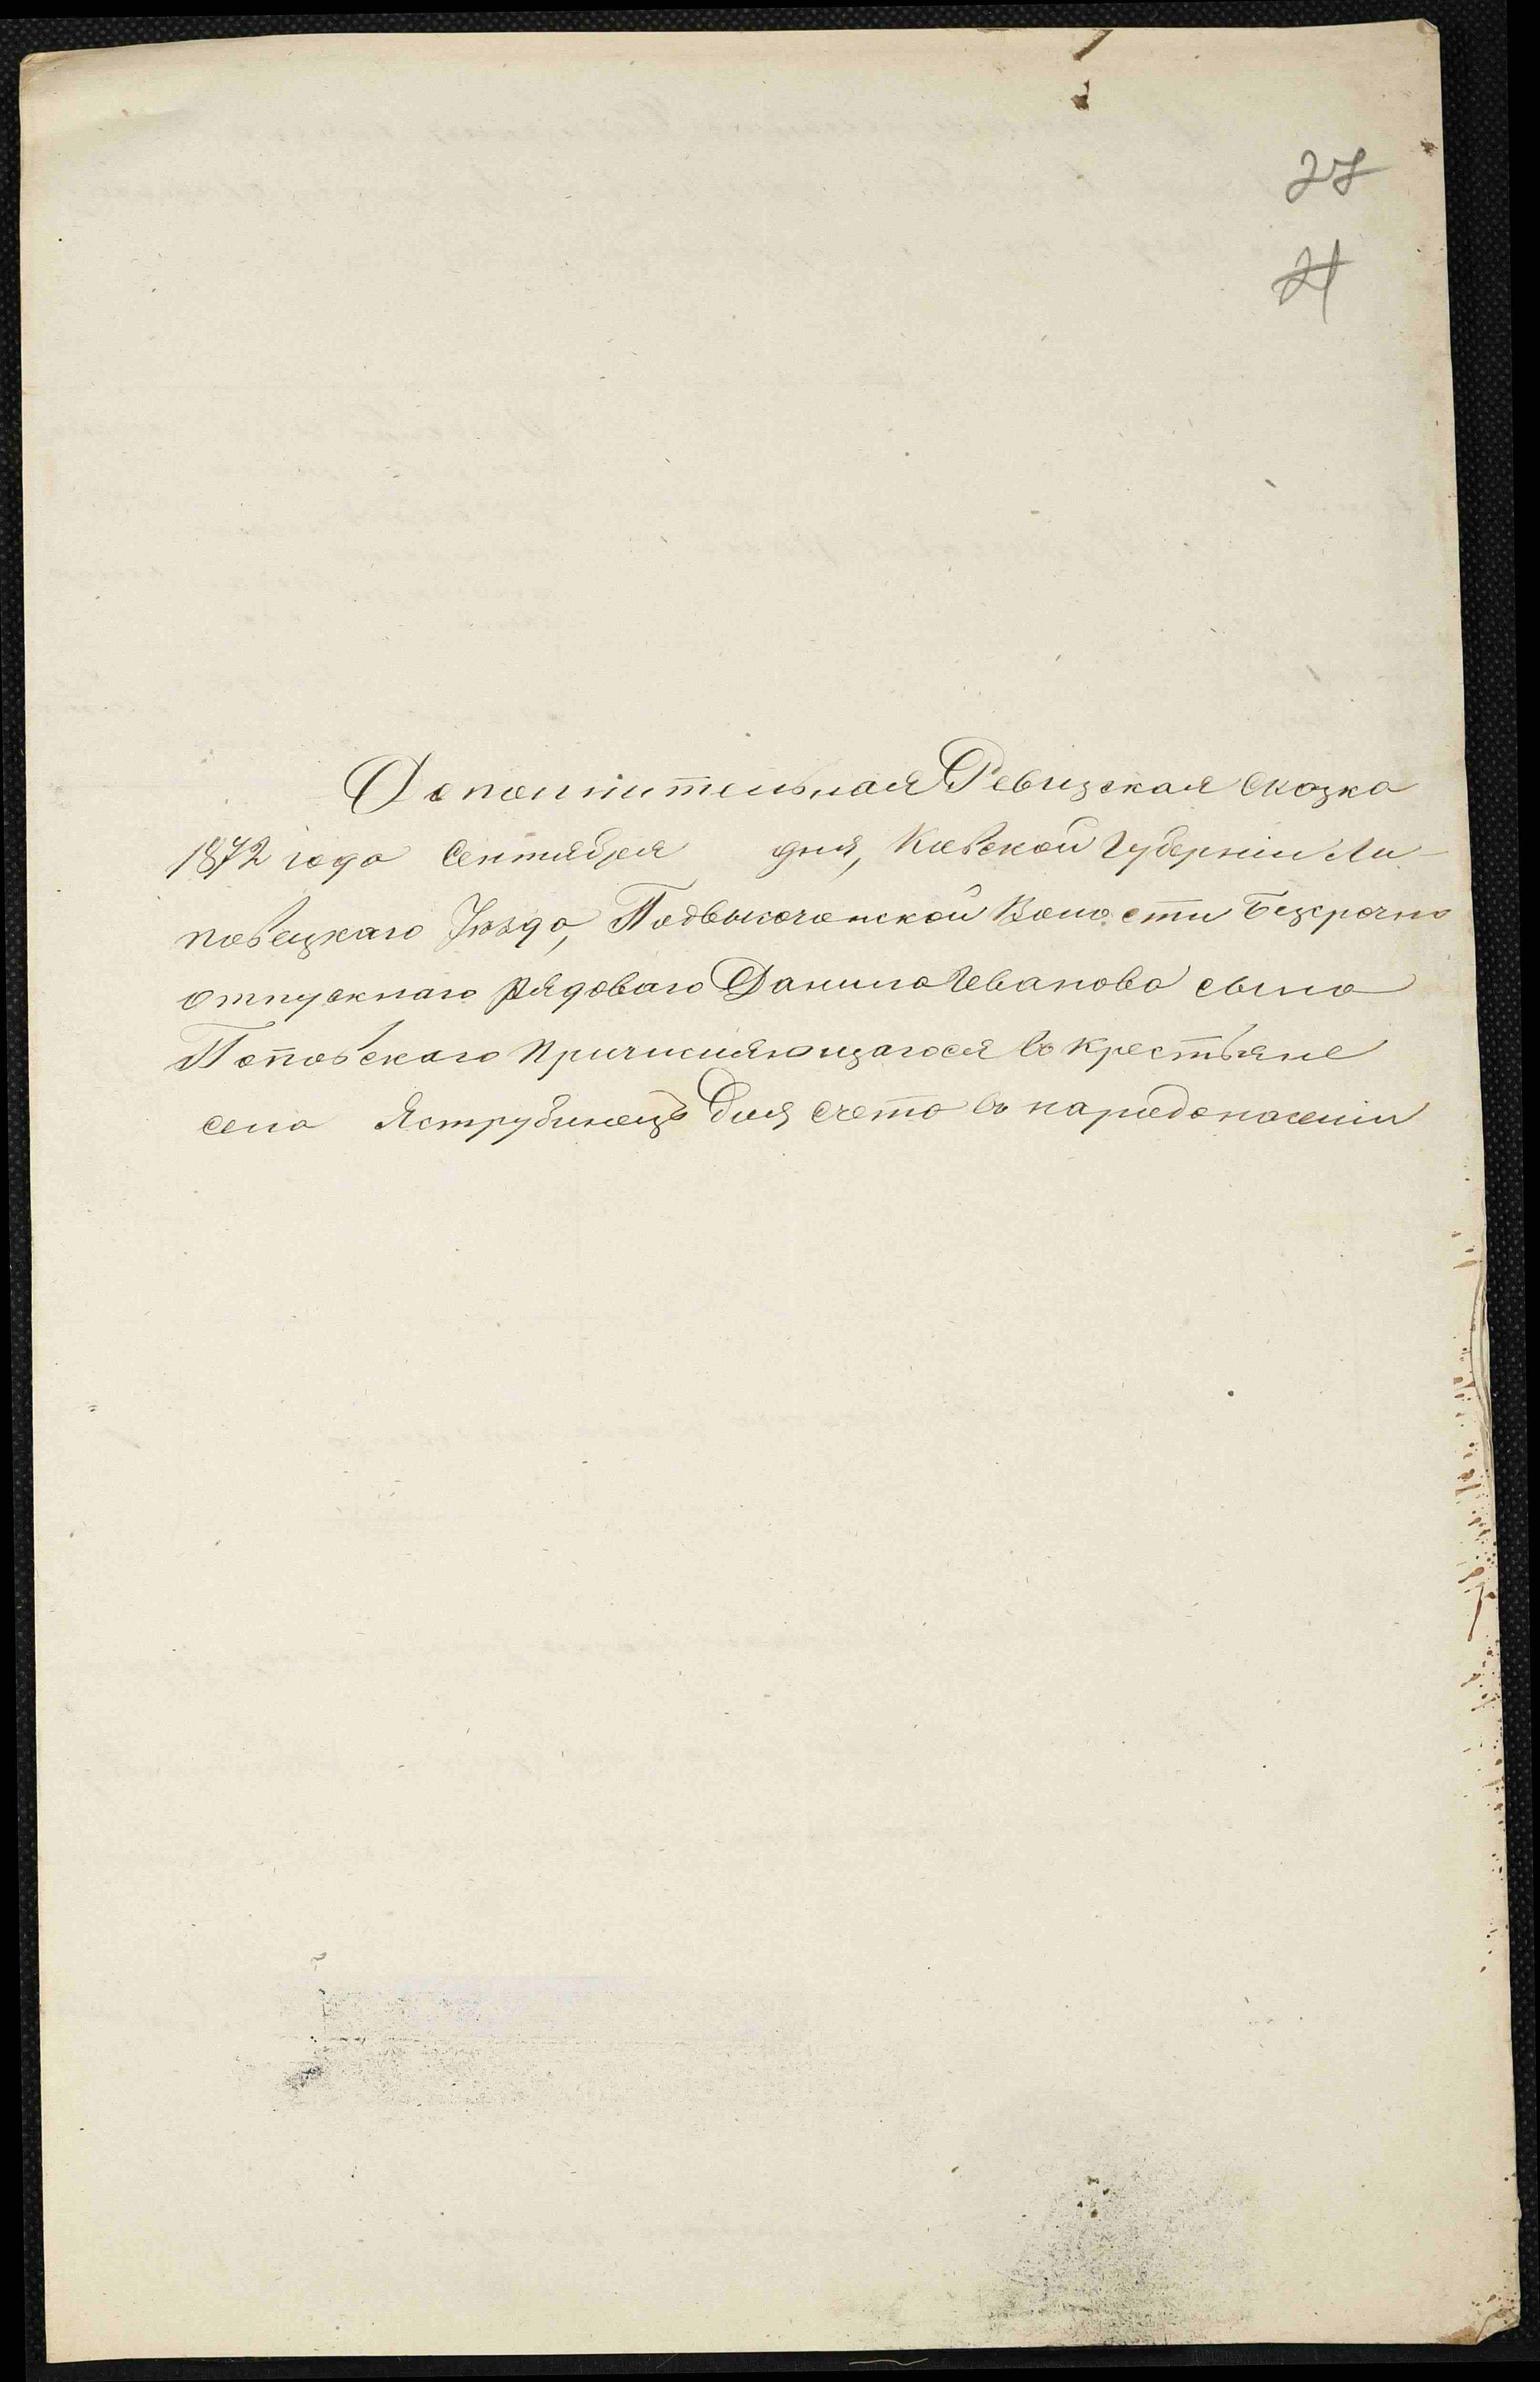 27
21
Дополнительная Ревизская сказка
1872 года Сентября дня, Киевской Губерніи Ли-
повецкаго Уѣзда, Подвысочанской Волости безсрочно
отпускнаго рядоваго Данила Иванова сына
Поповскаго причисляющагося въ крестьяне
села Яструбинецъ для счета въ народонаселеніи